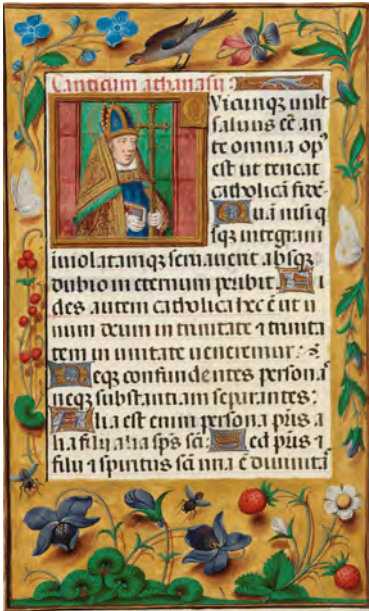 Canticum athanasii :
Quicunqꝫ vult
saluus eē an
te omnia op'
est ut teneat
catholicā fidē·
Quā nisi q
sqꝫ integram
inuolatamqꝫ seruauerit absqꝫ
dubio in eternum peribit. Fi
des autem catholica hec ē ut u
num deum in trinitate ⁊ trinita
tem in unitate ueneremur:
Neqꝫ confundentes personas
neqꝫ substantiam separantes:
Alia est enim persona pris a
lia filij alia sps sci: Sed pris ⁊
filij ⁊ spiritus sci una ē diuinita